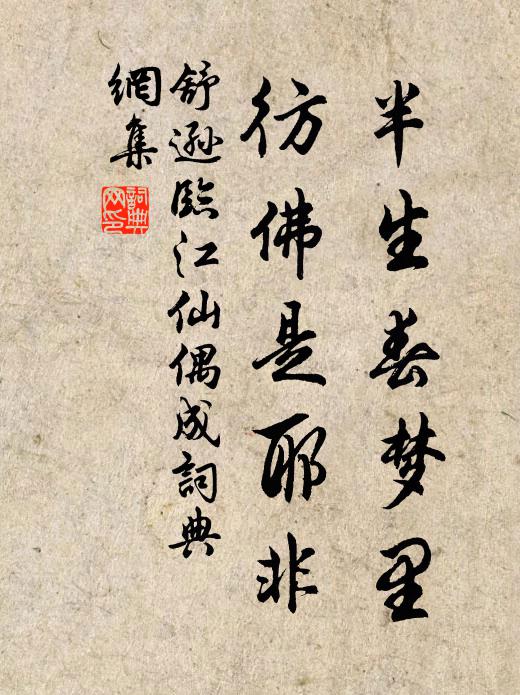 半生春梦里
彷佛是耶非
舒逊臨江仙偶成詞典
網集
詞典網印